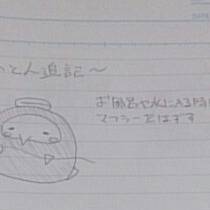 とん追記～
お風呂や水に入る時
マフラーをはずす